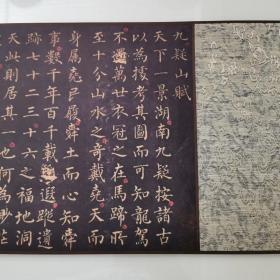 九疑山賦
天下一景湖南九疑按諸古
以為據考其圖而可知龍駕
不還萬世衣冠之在馬蹄所
至十分山水之奇戴堯天而
身屬堯已履舜土而心知舜
事數千年百千載遐蹤遺
跡七十二三十六之福地洞
天此則居其一也何為